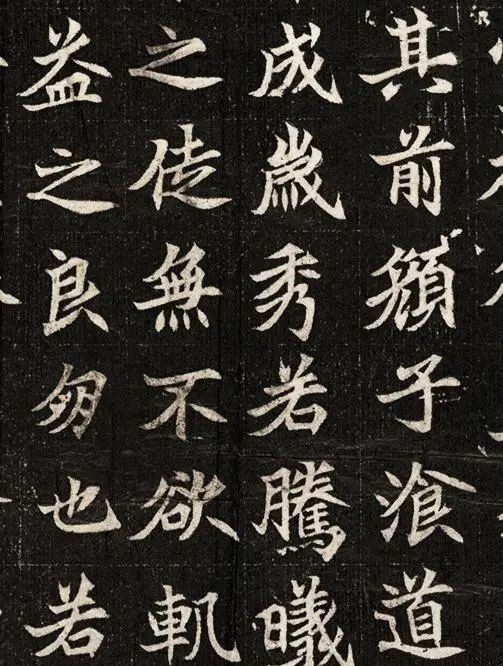 其前顏子湌道
成歲秀若騰曦
之徒無不欲軌
益之良朋也若